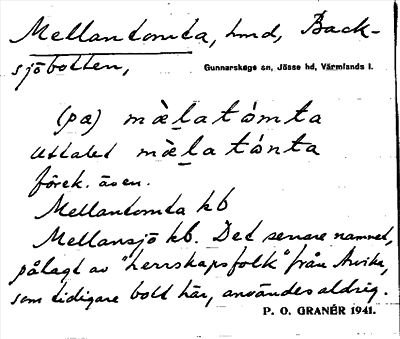 Mellantomta, hmd, Back-
sjöbotten,
Gunnarskogs sn, Jösse hd, Värmlands l.
(på) mà̀l̠atómta
Uttalet mæ̀l̠atónta
förek. även.
Mellantomta kb
Mellansjö kb. Det senare namnet,
pålagt av "herrskapsfolk" från Arvika,
som tidigare bott här, användes aldrig.
P. O. GRANÉR 1941.